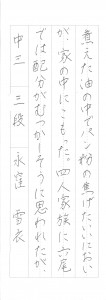 煮えた油の中でパン粉の焦げたいいにおい
が、家の中にこもった。四人家族に六尾
では配分がむつかしそうに思われたが、
中三　三段　永窪　雪衣